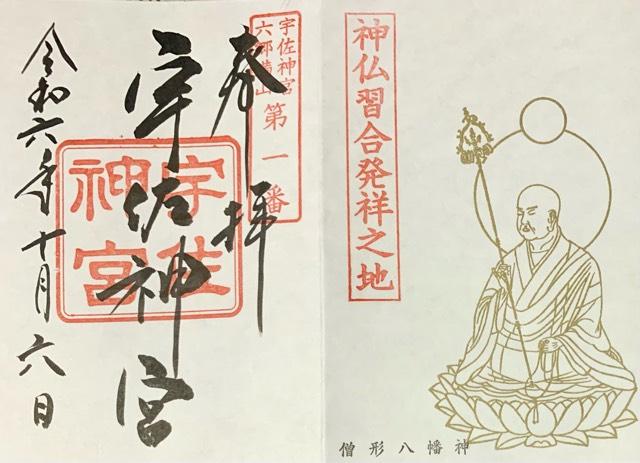 神仏習合発祥之地
僧形八幡神
奉拝
宇佐神宮
六郷満山
第一番
宇佐神宮
宇佐神宮
令和六年十月六日